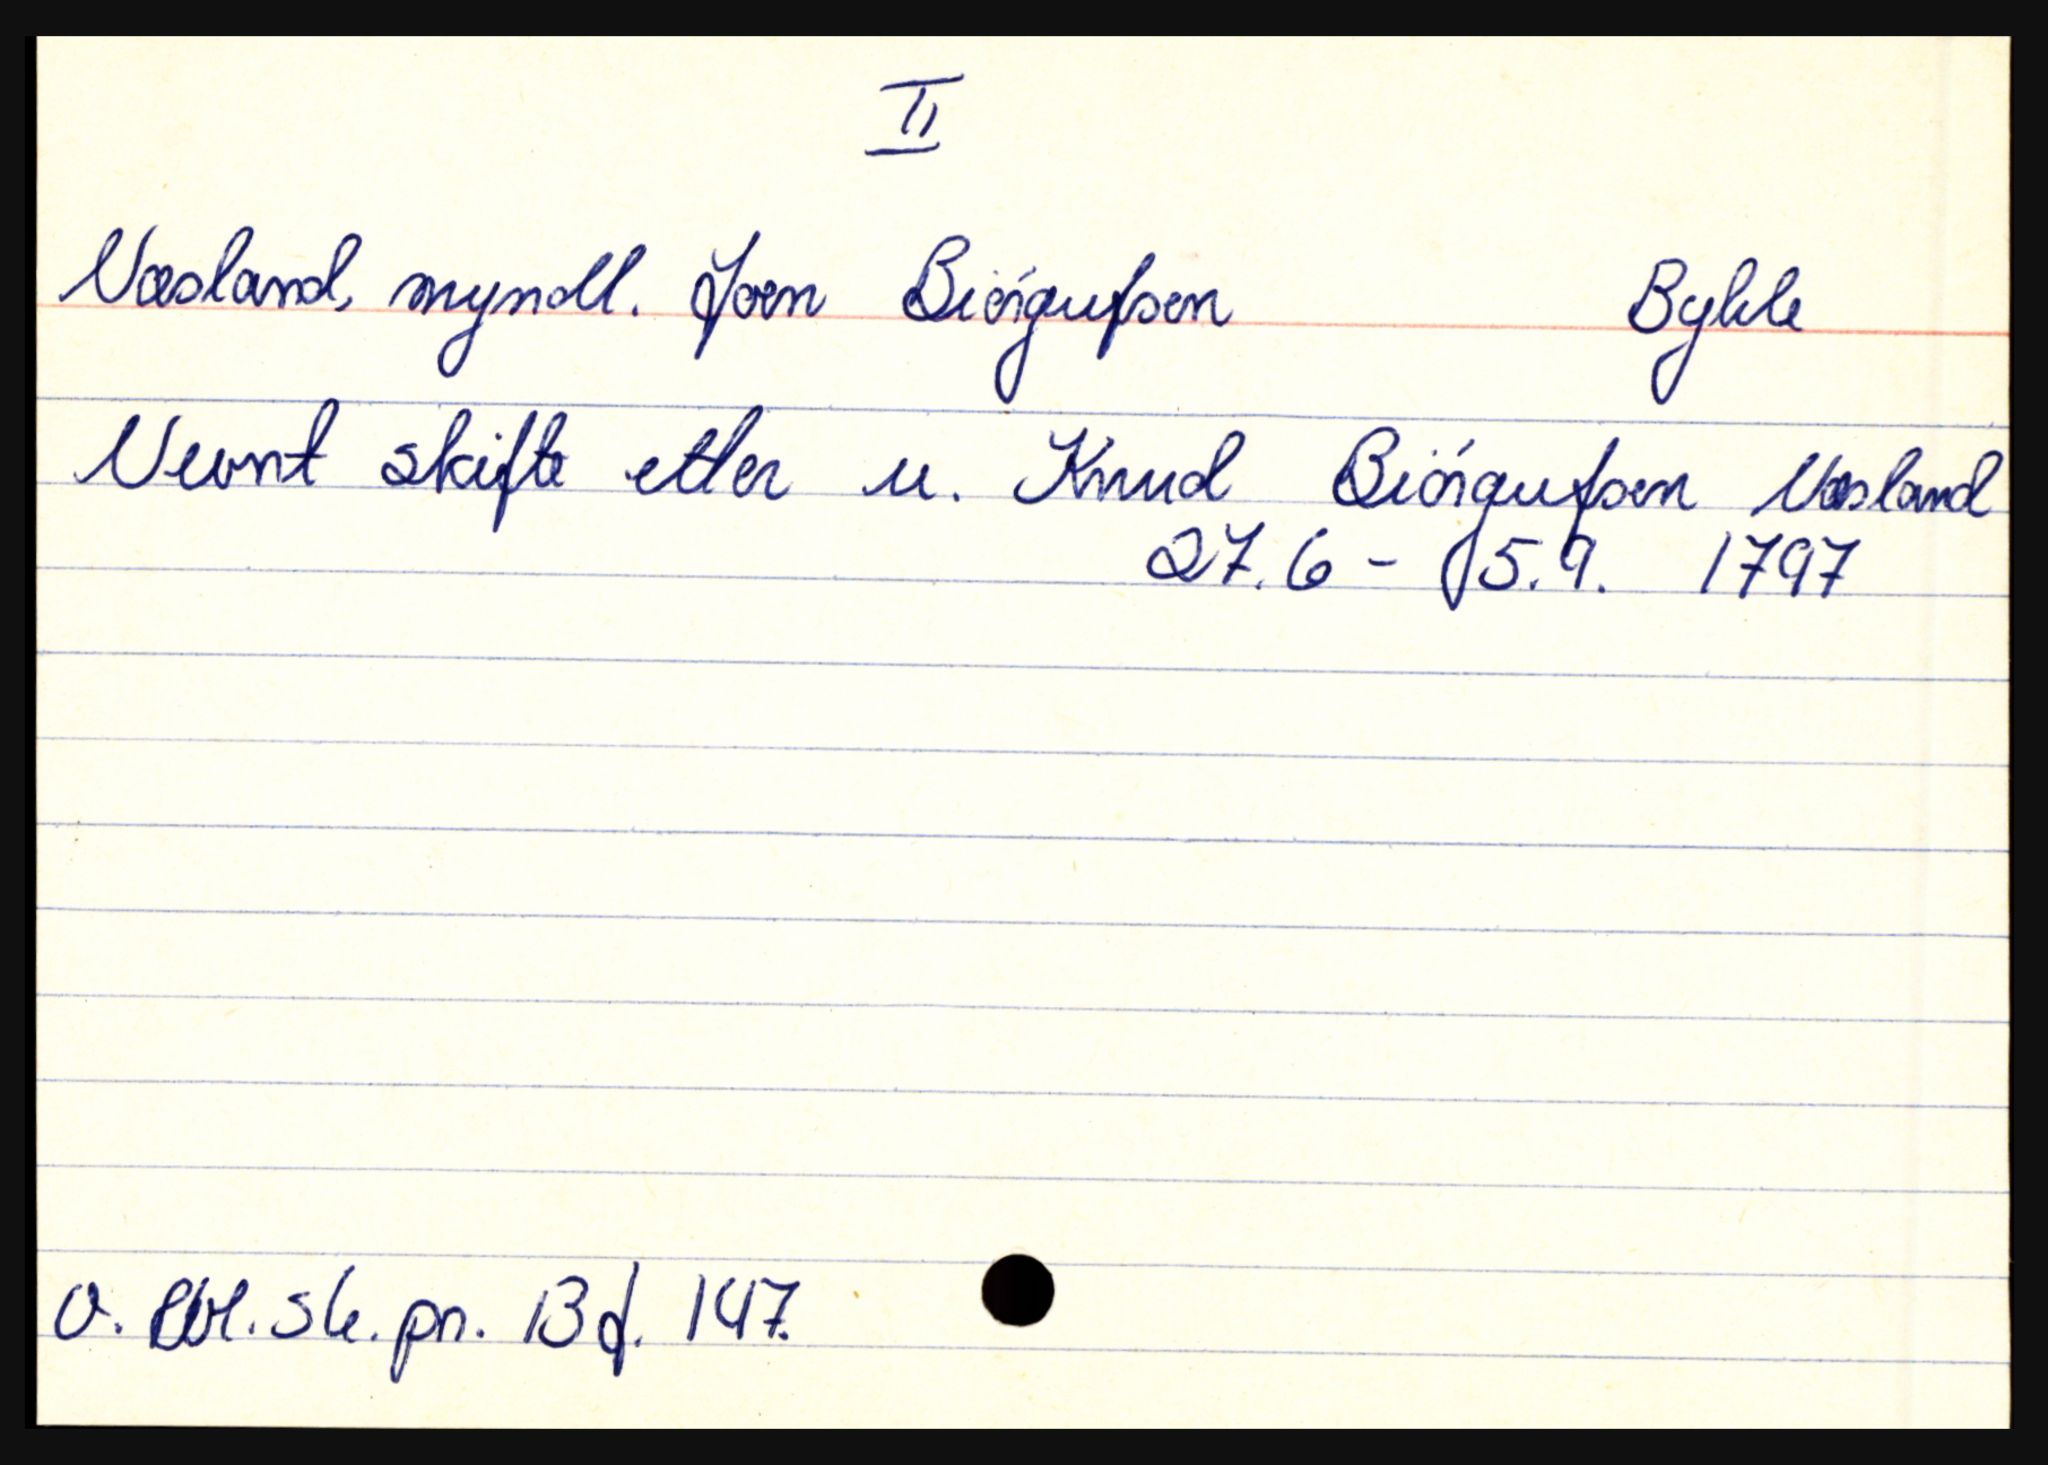 II
Næsland, myndl. Joen Biórgufsen Bykle
Nevnt skifte etter u. Knud Biórgufsen Næsland
27.6 - 5.9. 1797
O. Rbl. sk. pr. 13 f. 147.